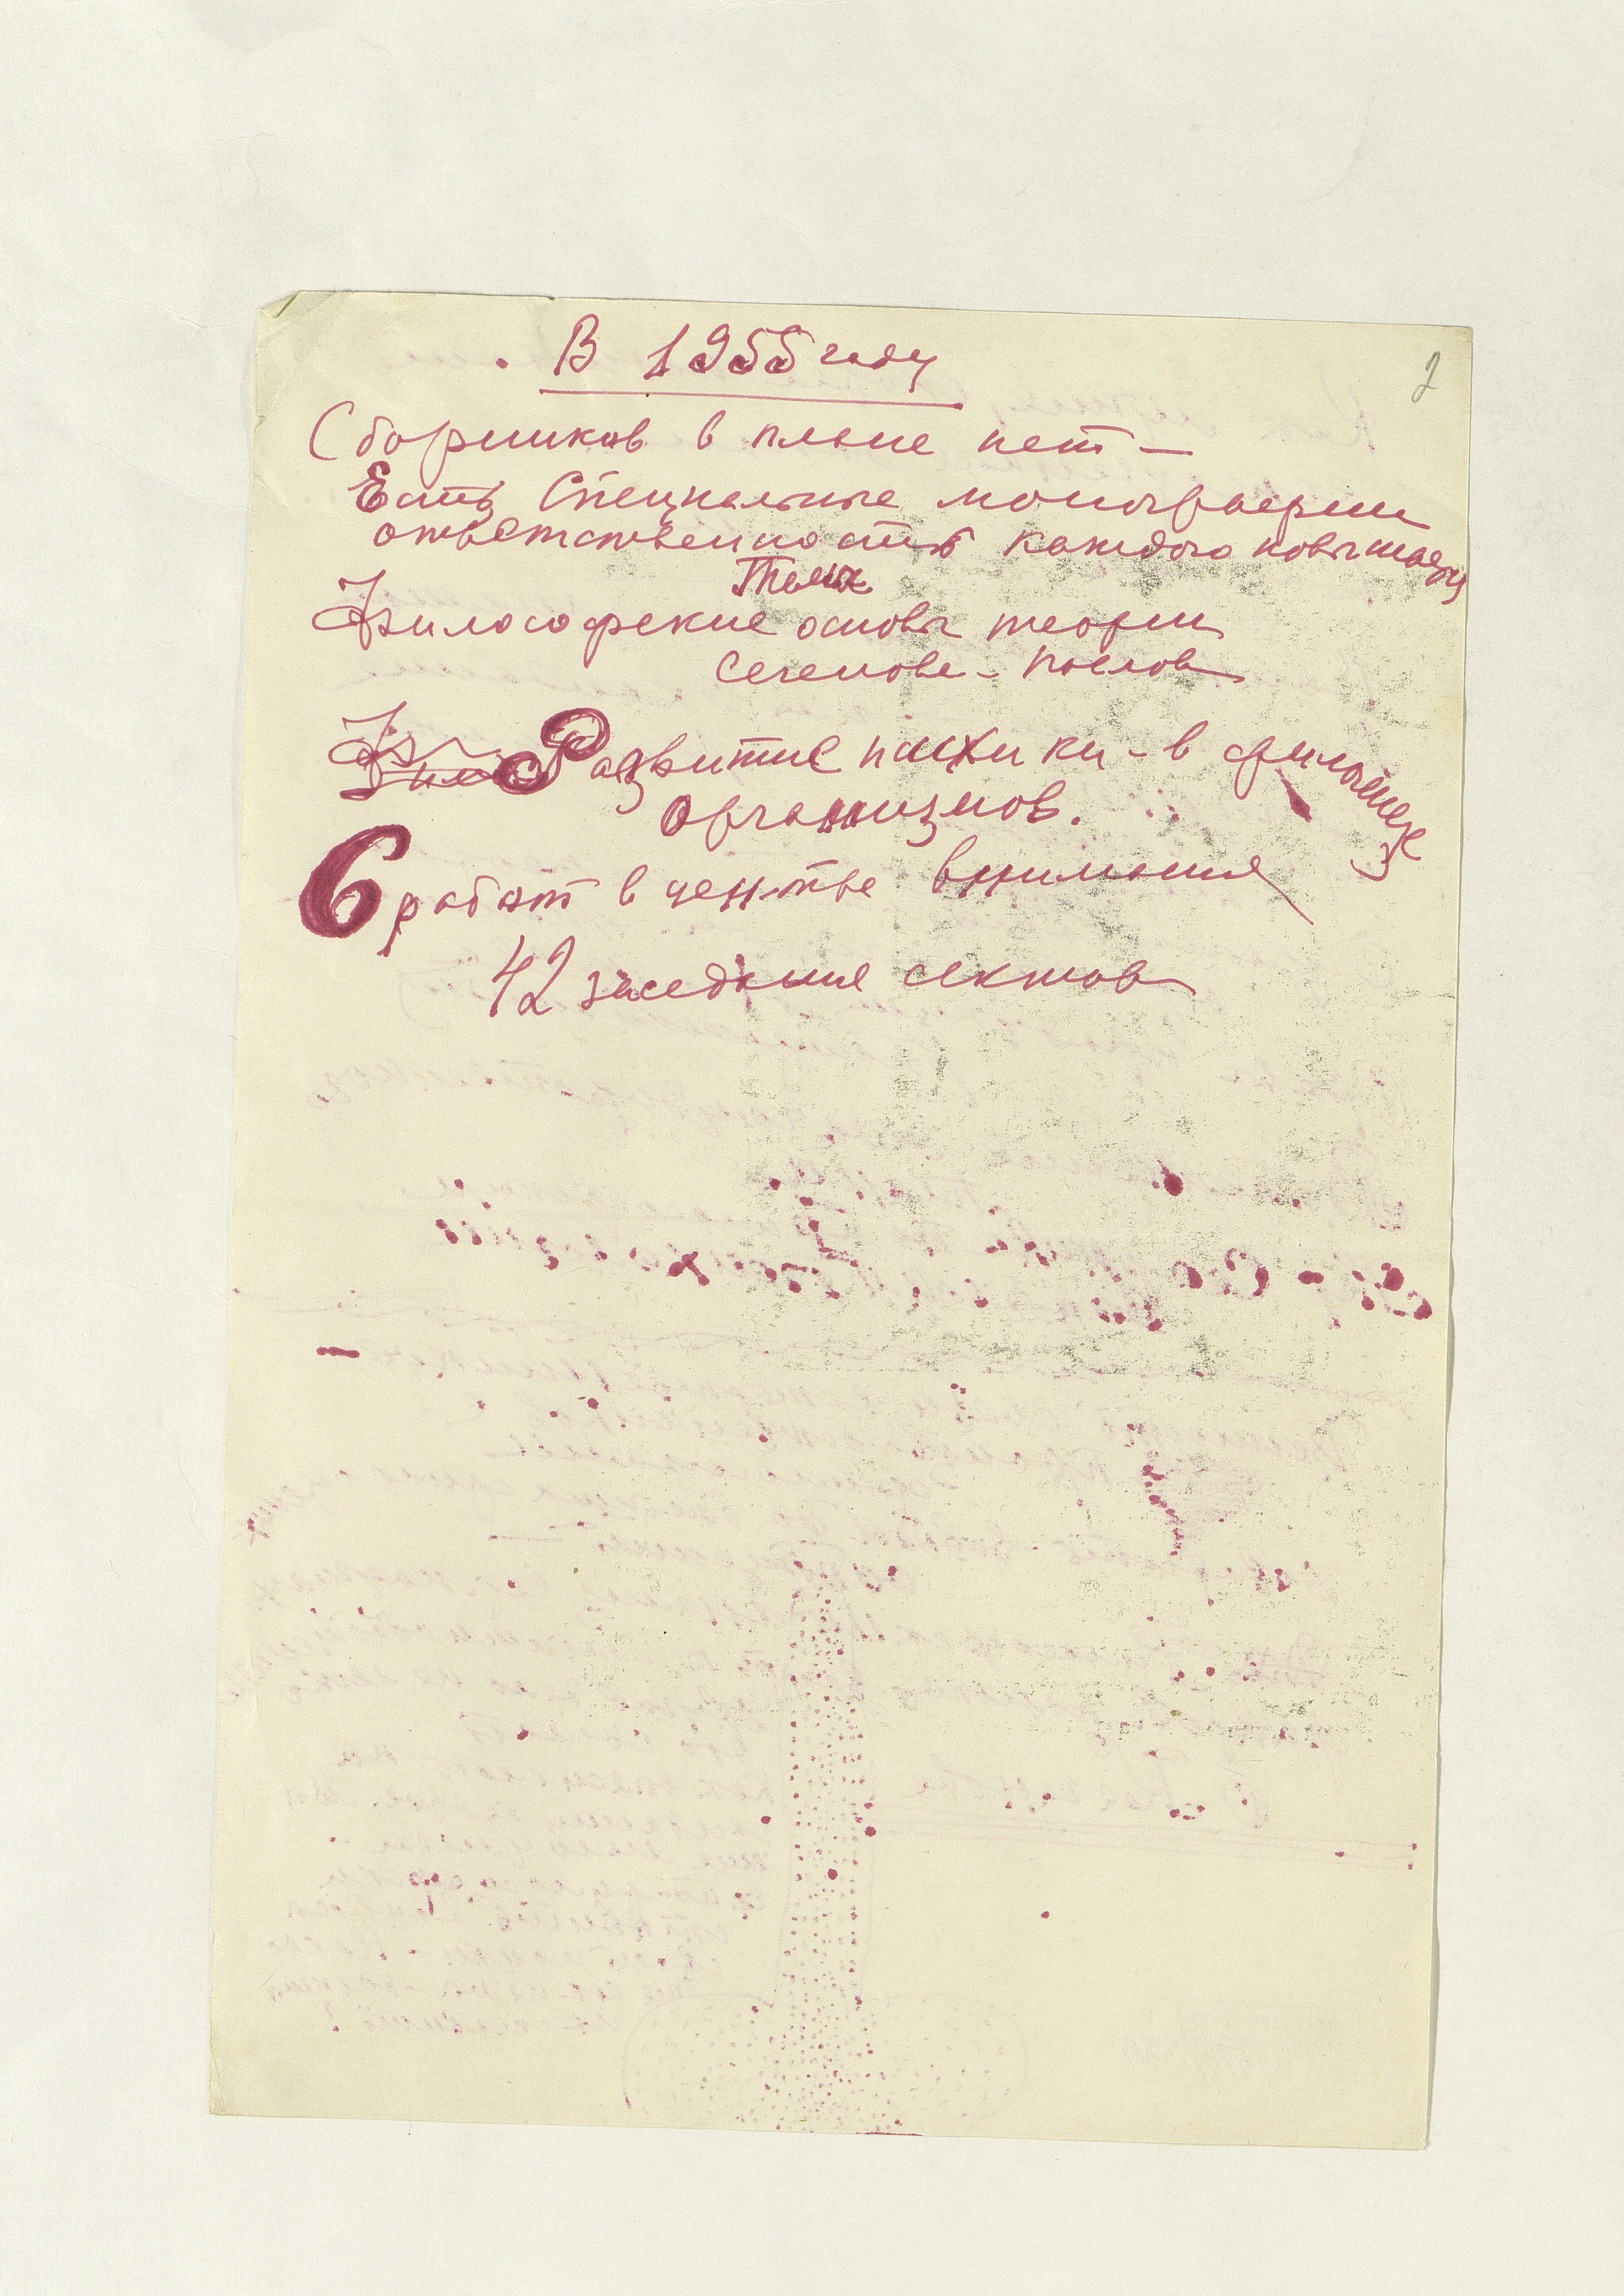 2
В 1955 году
Сборников в плане нет —
Есть Специальные монографии
ответственность каждого повышает
Темы
Философские основы теории
Сеченова - Павлова
Развитие психики - в филогенезе
организмов.
6 работ в центре внимания
42 заседания сектора